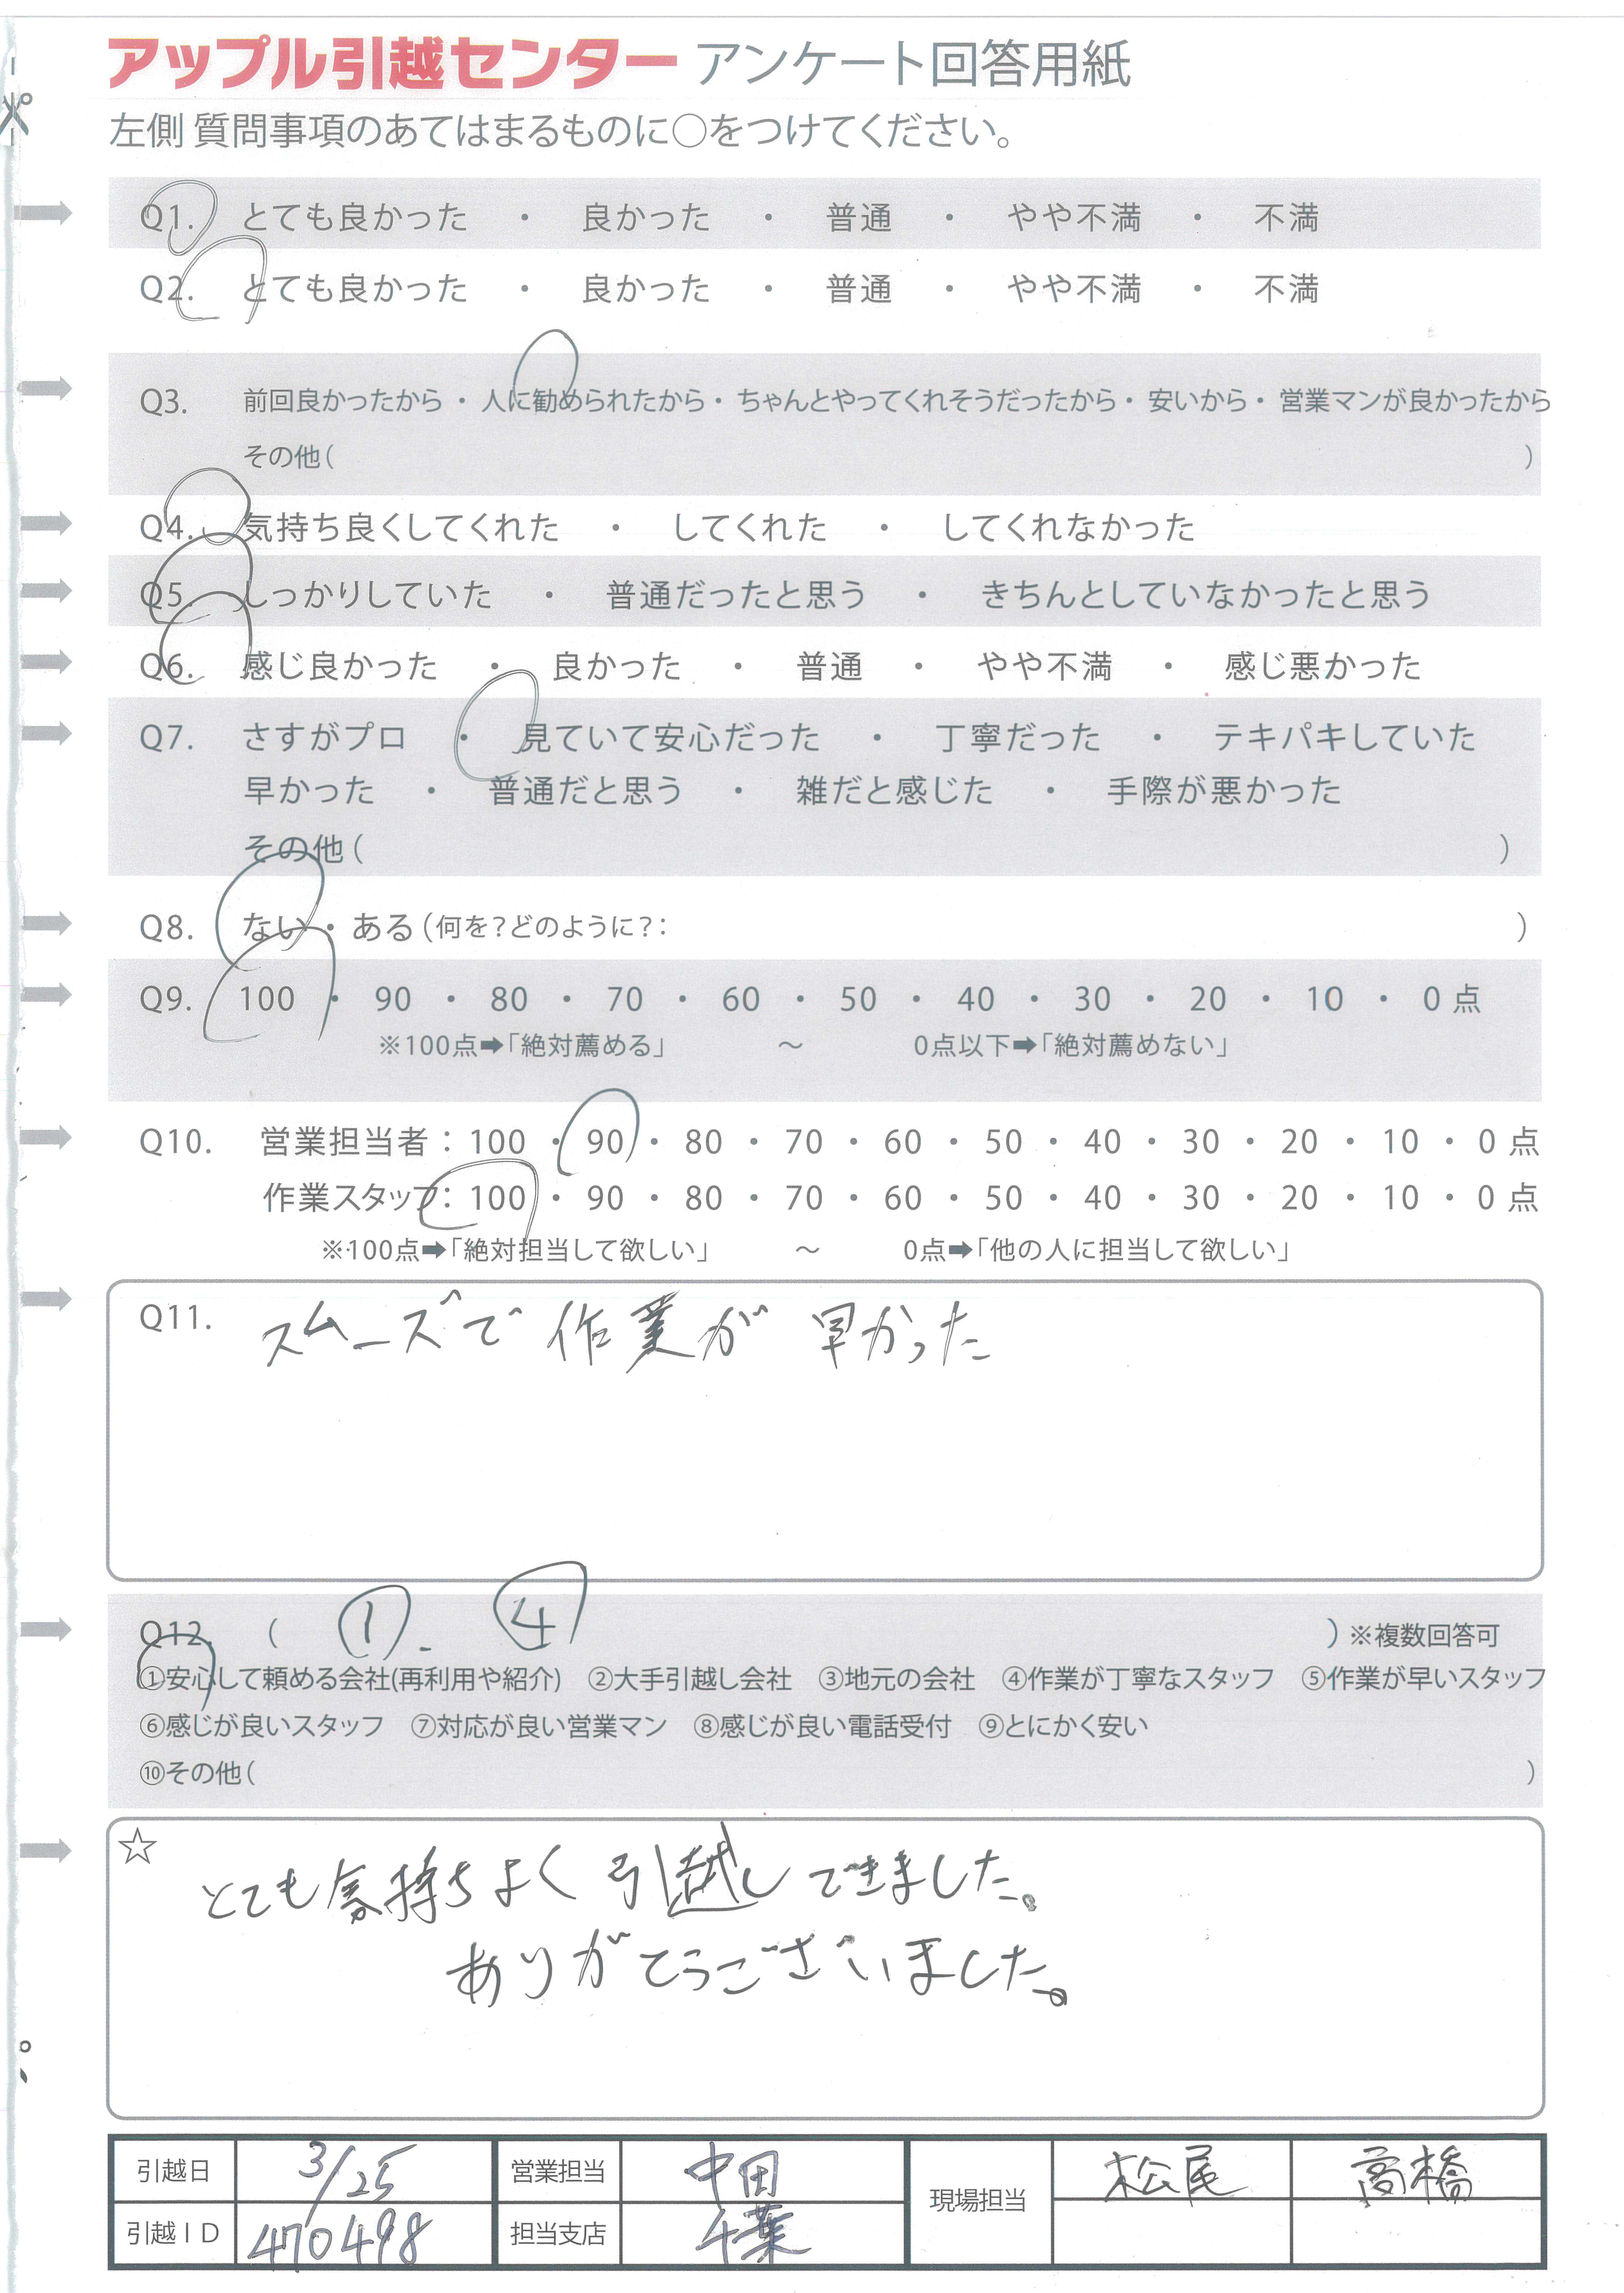 アップル引越センター アンケート回答用紙
左側 質問事項のあてはまるものに○をつけてください。
Q1. とても良かった ・ 良かった ・ 普通 ・ やや不満 ・ 不満
Q2. とても良かった ・ 良かった ・ 普通 ・ やや不満 ・ 不満
Q3. 前回良かったから ・ 人に勧められたから ・ ちゃんとやってくれそうだったから ・ 安いから ・ 営業マンが良かったから
その他( )
Q4. 気持ち良くしてくれた ・ してくれた ・ してくれなかった
Q5. しっかりしていた ・ 普通だったと思う ・ きちんとしていなかったと思う
Q6. 感じ良かった ・ 良かった ・ 普通 ・ やや不満 ・ 感じ悪かった
Q7. さすがプロ ・ 見ていて安心だった ・ 丁寧だった ・ テキパキしていた
早かった ・ 普通だと思う ・ 雑だと感じた ・ 手際が悪かった
その他( )
Q8. ない ・ ある(何を?どのように?: )
Q9. 100 ・ 90 ・ 80 ・ 70 ・ 60 ・ 50 ・ 40 ・ 30 ・ 20 ・ 10 ・ 0 点
※100点➡「絶対薦める」 ～ 0点以下➡「絶対薦めない」
Q10. 営業担当者：100 ・ 90 ・ 80 ・ 70 ・ 60 ・ 50 ・ 40 ・ 30 ・ 20 ・ 10 ・ 0 点
作業スタッフ：100 ・ 90 ・ 80 ・ 70 ・ 60 ・ 50 ・ 40 ・ 30 ・ 20 ・ 10 ・ 0 点
※100点➡「絶対担当して欲しい」 ～ 0点➡「他の人に担当して欲しい」
Q11. スムーズで 作業が 早かった
Q12. ( ①. ④ ) ※複数回答可
①安心して頼める会社(再利用や紹介) ②大手引越し会社 ③地元の会社 ④作業が丁寧なスタッフ ⑤作業が早いスタッフ
⑥感じが良いスタッフ ⑦対応が良い営業マン ⑧感じが良い電話受付 ⑨とにかく安い
⑩その他( )
☆ とても気持ちよく 引越しできました。
ありがとうございました。
引越日 3/25 営業担当 中田 現場担当 松尾 高橋
引越ID 470498 担当支店 千葉